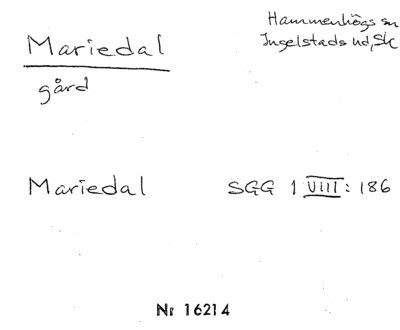 Mariedal
gård
Hammenhögs sn
Ingelstads hd, Sk
Mariedal SGG 1 VIII: 186
Nr 16214